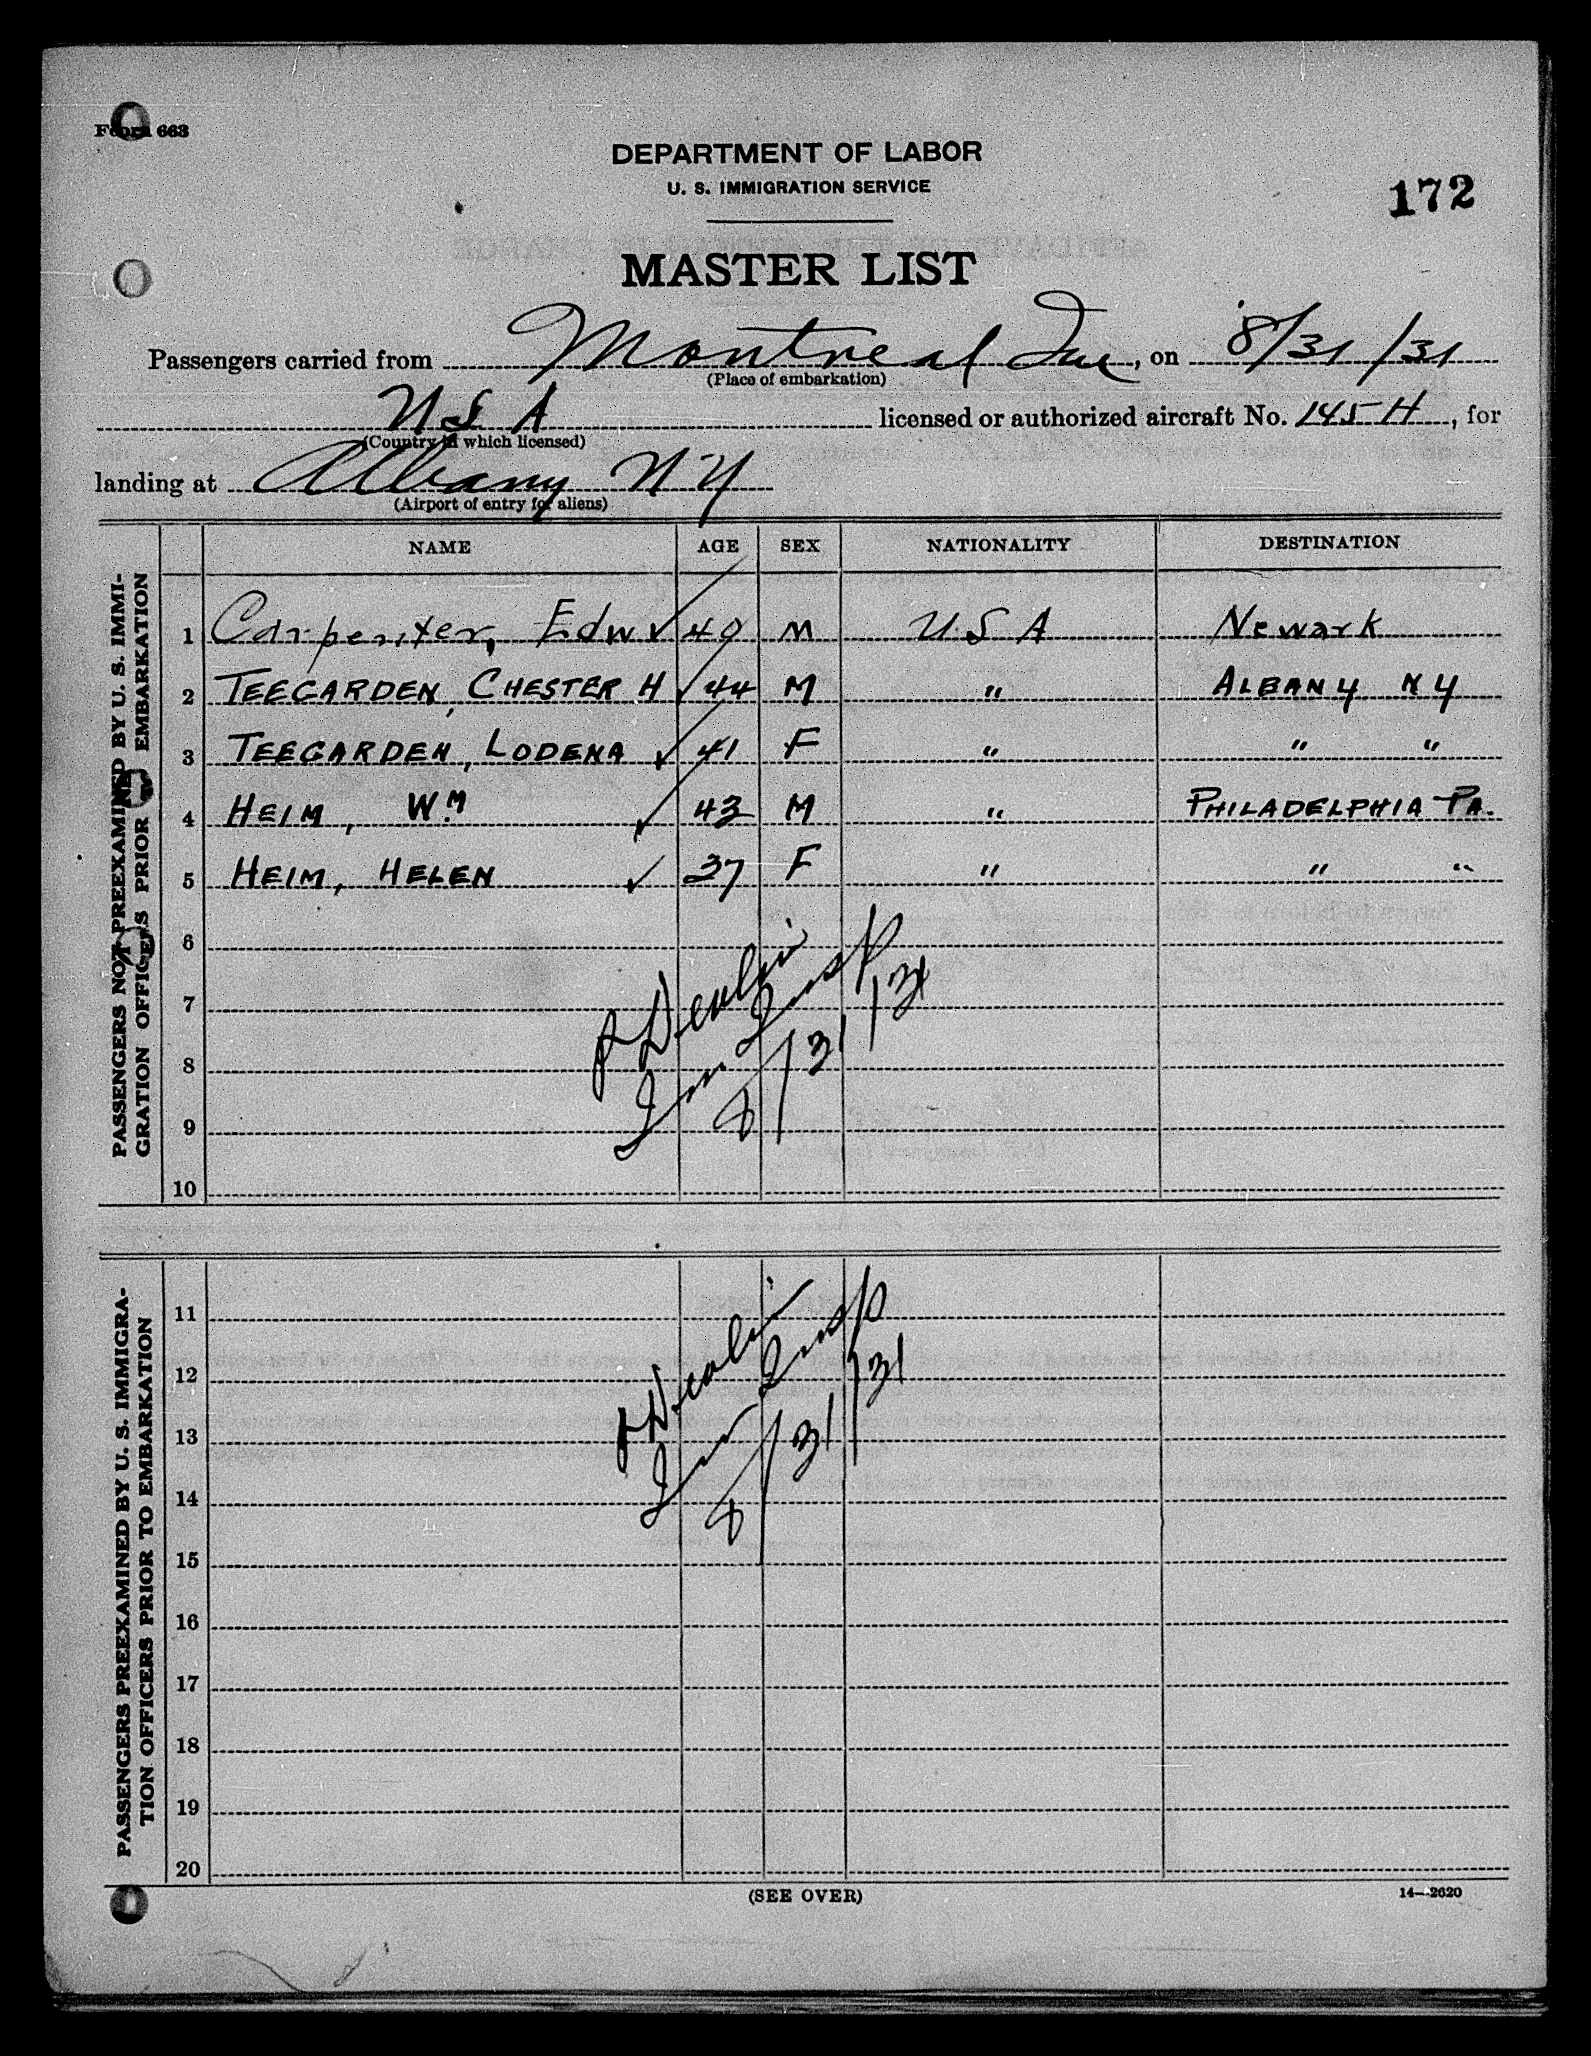 Form 663
DEPARTMENT OF LABOR
U. S. IMMIGRATION SERVICE
172
MASTER LIST
Passengers carried from Montreal Que, on 8/31/31
(Place of embarkation)
U S A licensed or authorized aircraft No. 145 H, for
(Country in which licensed)
landing at Albany N Y
(Airport of entry for aliens)
NAME AGE SEX NATIONALITY DESTINATION
PASSENGERS NOT PREEXAMINED BY U. S. IMMI-
GRATION OFFICERS PRIOR TO EMBARKATION
1 Carpenter, Edw ✓ 40 M U S A Newark
2 TEEGARDEN, CHESTER H ✓ 44 M " ALBANY N Y
3 TEEGARDEN, LODENA ✓ 41 F " " "
4 HEIM, WM ✓ 43 M " PHILADELPHIA PA.
5 HEIM, HELEN ✓ 37 F " " "
6
7
8
9
10
Devlin
Imm Insp
8/31/31
PASSENGERS PREEXAMINED BY U. S. IMMIGRA-
TION OFFICERS PRIOR TO EMBARKATION
11
12
13
14
15
16
17
18
19
20
Devlin
Imm Insp
8/31/31
(SEE OVER)
14—2620